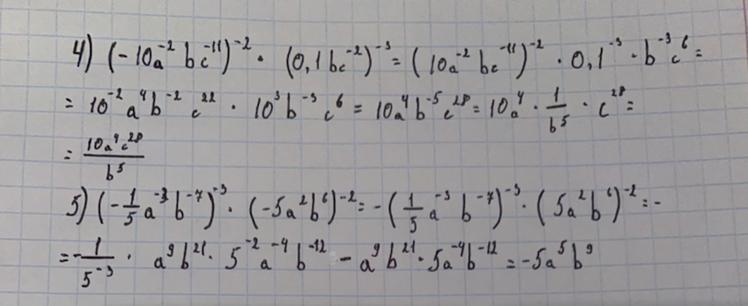 4) (-10a⁻²bc⁻¹¹)⁻² · (0,1bc⁻²)⁻³ = (10a⁻²bc⁻¹¹)⁻² · 0,1⁻³ · b⁻³c⁶ =
= 10⁻²a⁴b⁻²c²² · 10³b⁻³c⁶ = 10a⁴b⁻⁵c²⁸ = 10a⁴ · 1/b⁵ · c²⁸ =
= 10a⁴c²⁸/b⁵
5) (-1/5a⁻³b⁻⁷)⁻³ · (-5a²b⁶)⁻² = -(1/5a⁻³b⁻⁷)⁻³ · (5a²b⁶)⁻² = -
= -1/5⁻³ · a⁹b²¹ · 5⁻²a⁻⁴b⁻¹² - a⁹b²¹ · 5a⁻⁴b⁻¹² = -5a⁵b⁹